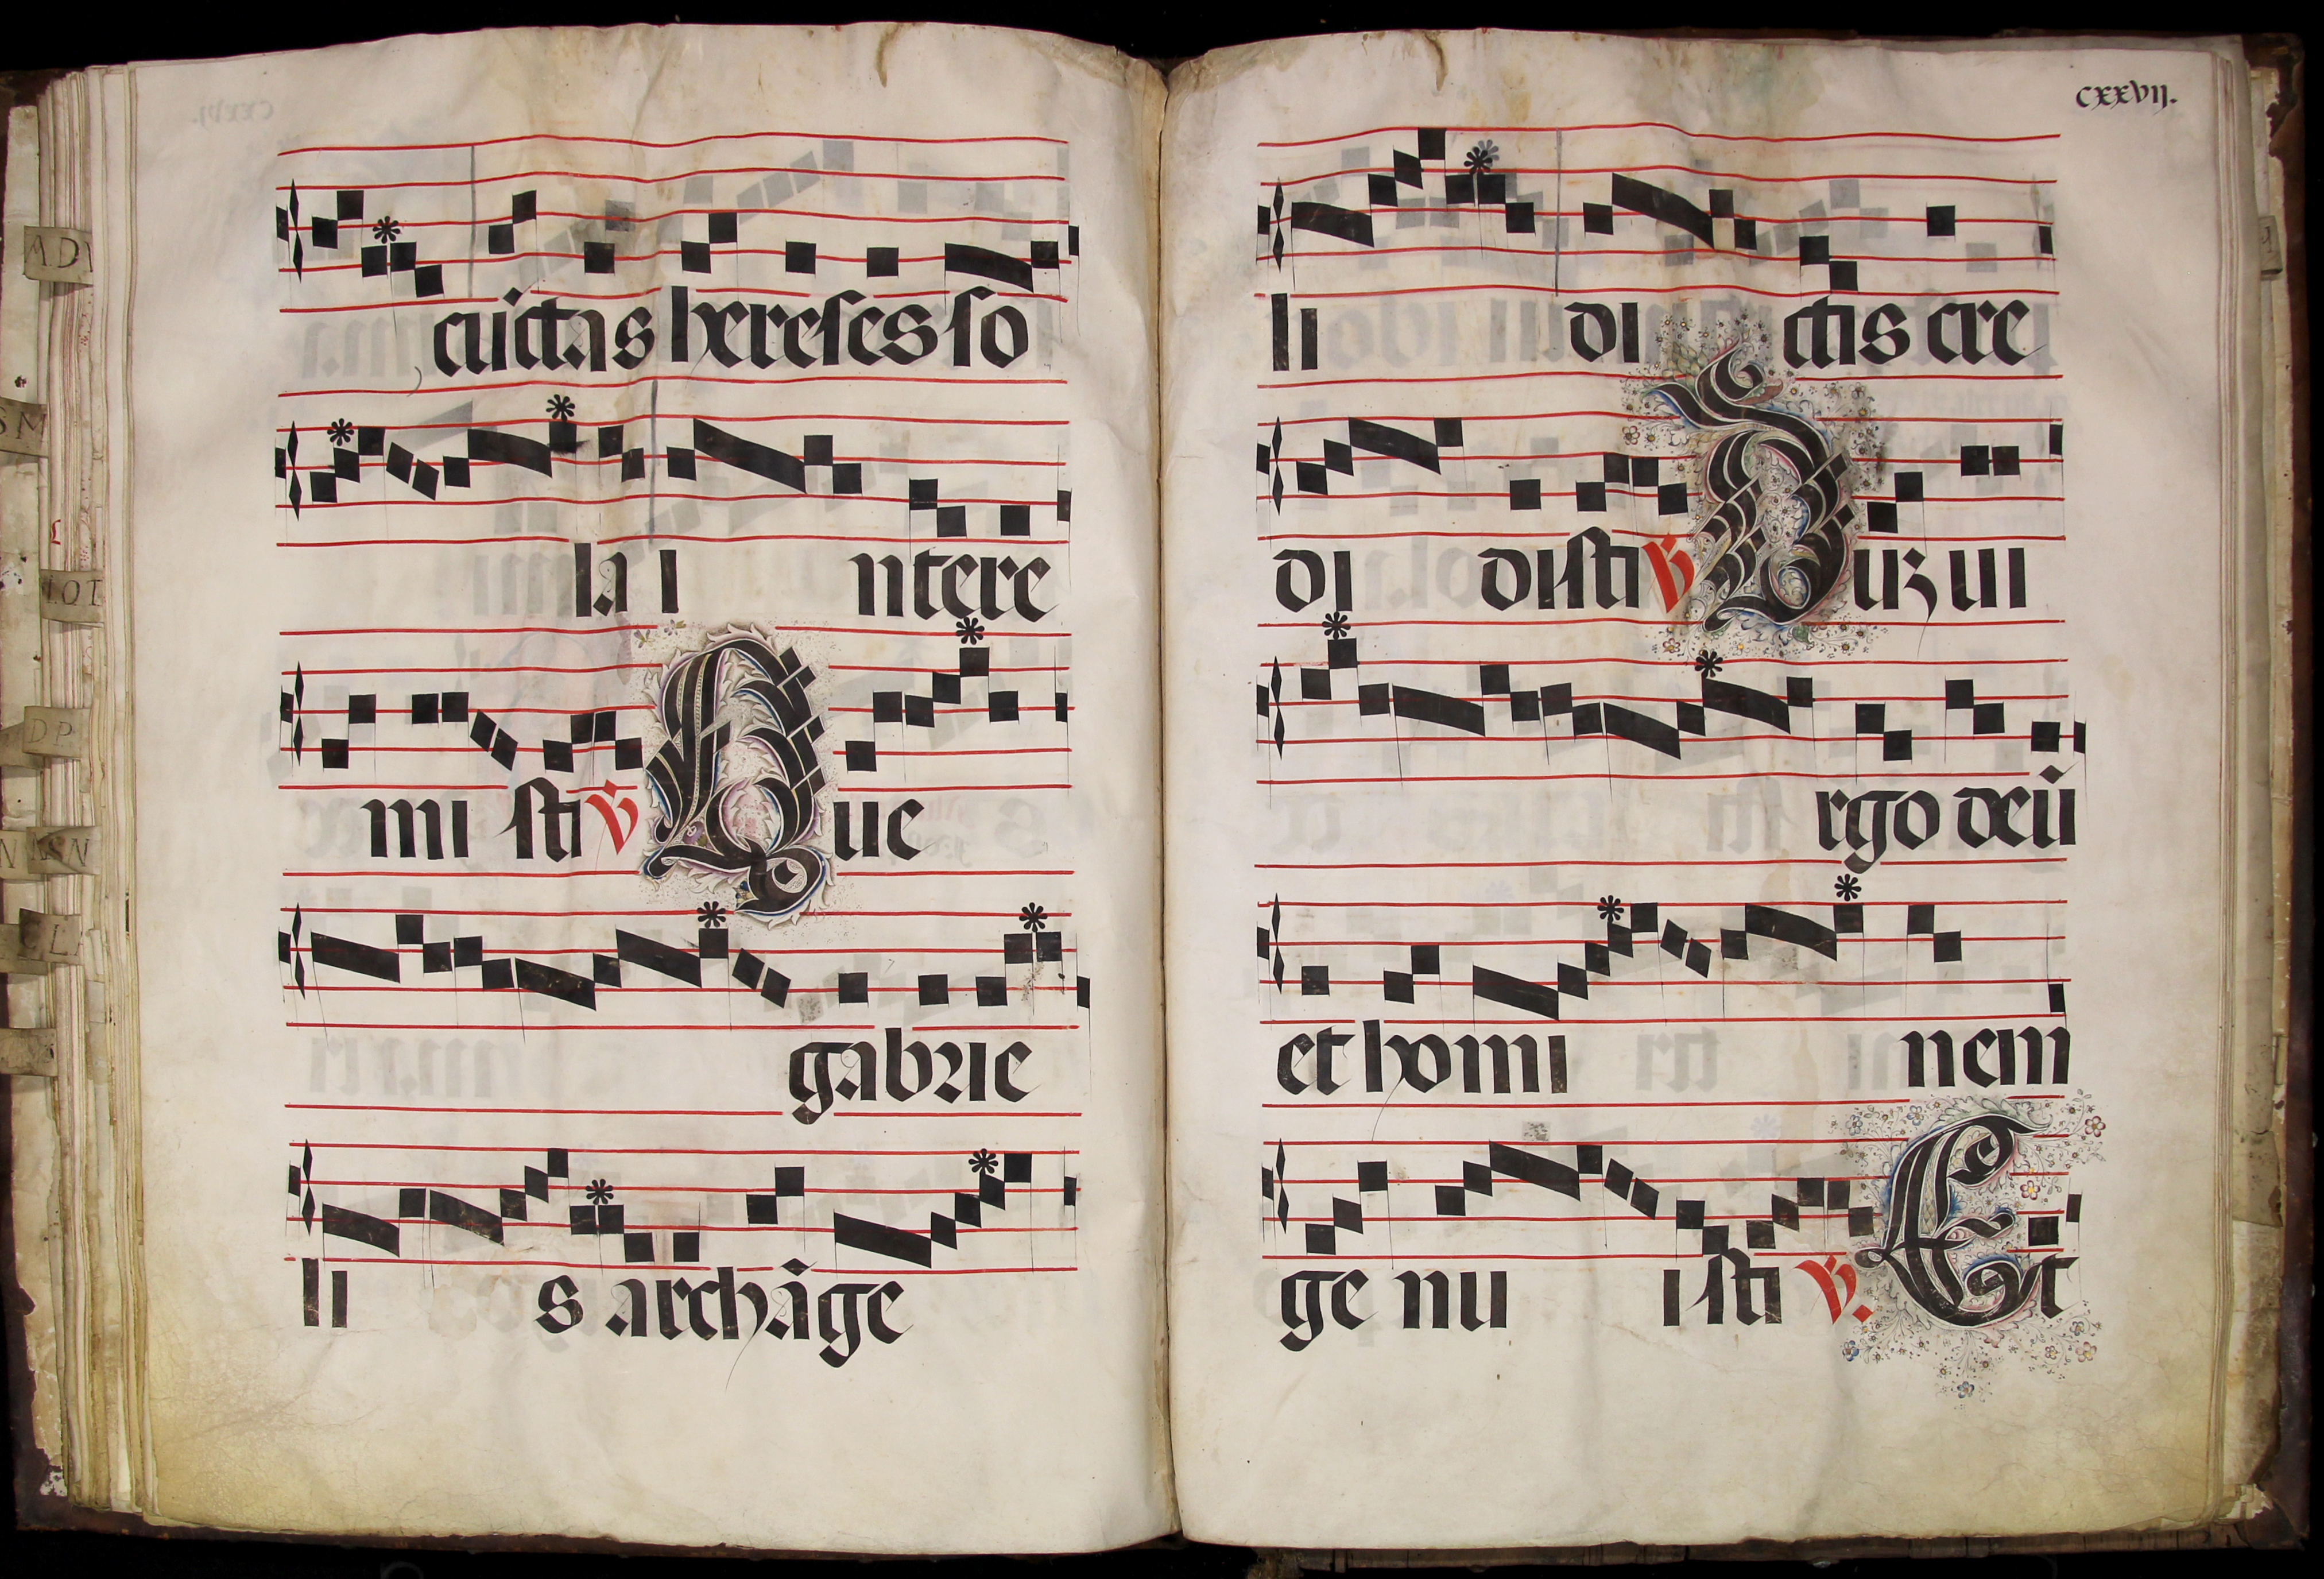 cūctas hereses so
la i ntere
mi sti ℣ Que
gabrie
li s archāge
cxxvij.
li di ctis cre
di disti ℣ Dūz vi
rgo deū
et homi nem
ge nu isti ℣. Et